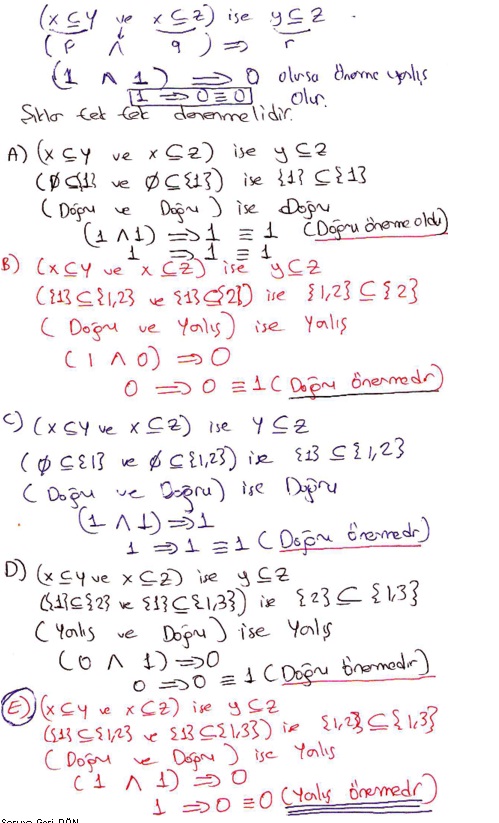 (x ⊆ y ve x ⊆ z) ise y ⊆ z
(p ∧ q) ⇒ r
(1 ∧ 1) ⇒ 0 olursa önerme yanlış olur.
1 ⇒ 0 ≡ 0
Şıklar tek tek denenmelidir.
A) (x ⊆ y ve x ⊆ z) ise y ⊆ z
(∅ ⊆ {1} ve ∅ ⊆ {1}) ise {1} ⊆ {1}
(Doğru ve Doğru) ise Doğru
(1 ∧ 1) ⇒ 1 ≡ 1 (Doğru önerme oldu)
1 ⇒ 1 ≡ 1
B) (x ⊆ y ve x ⊆ z) ise y ⊆ z
({1} ⊆ {1,2} ve {1} ⊆ {2}) ise {1,2} ⊆ {2}
(Doğru ve Yanlış) ise Yanlış
(1 ∧ 0) ⇒ 0
0 ⇒ 0 ≡ 1 (Doğru önermedir)
C) (x ⊆ y ve x ⊆ z) ise y ⊆ z
(∅ ⊆ {1} ve ∅ ⊆ {1,2}) ise {1} ⊆ {1,2}
(Doğru ve Doğru) ise Doğru
(1 ∧ 1) ⇒ 1
1 ⇒ 1 ≡ 1 (Doğru önermedir)
D) (x ⊆ y ve x ⊆ z) ise y ⊆ z
({1} ⊆ {2} ve {1} ⊆ {1,3}) ise {2} ⊆ {1,3}
(Yanlış ve Doğru) ise Yanlış
(0 ∧ 1) ⇒ 0
0 ⇒ 0 ≡ 1 (Doğru önermedir)
E) (x ⊆ y ve x ⊆ z) ise y ⊆ z
({1} ⊆ {1,2} ve {1} ⊆ {1,3}) ise {1,2} ⊆ {1,3}
(Doğru ve Doğru) ise Yanlış
(1 ∧ 1) ⇒ 0
1 ⇒ 0 ≡ 0 (Yanlış önermedir)
Soruya Geri DÖN